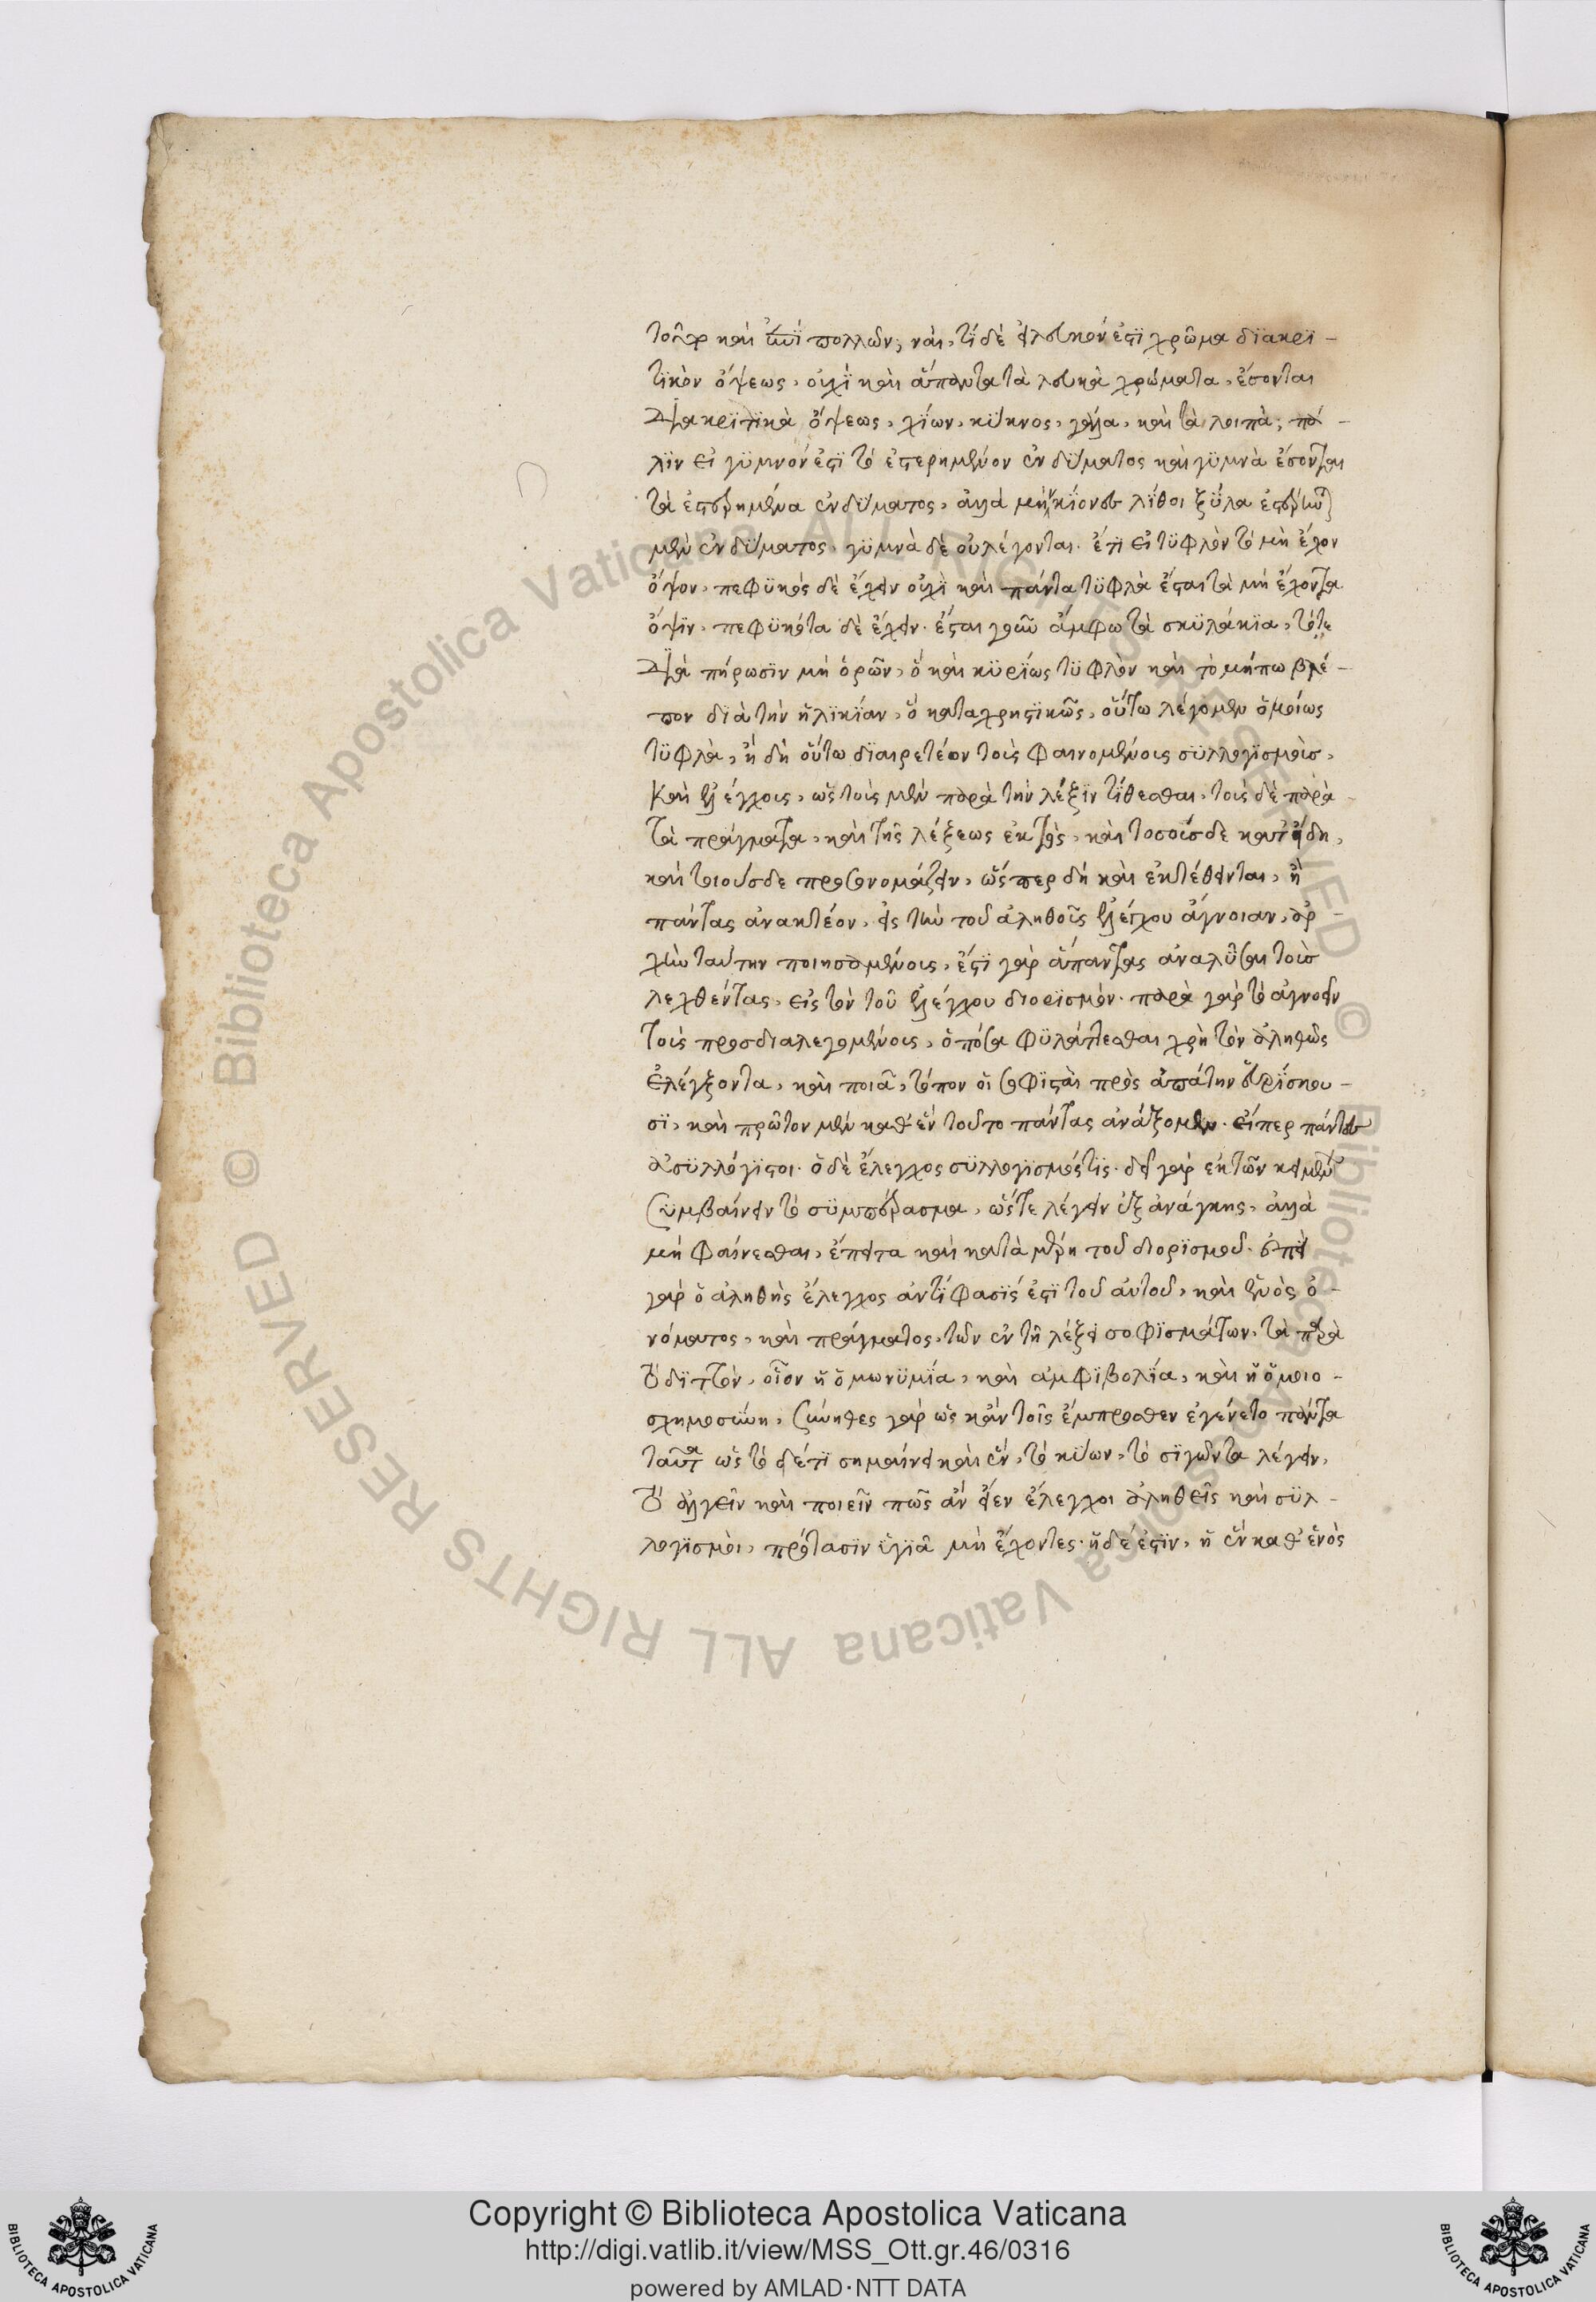 καὶ ἐπὶ πολλῶν; ναί, τί δὲ εἰ λευκόν ἐστι χρῶμα διακρι-
τικὸν ὄψεως, οὐχὶ καὶ ἅπαντα τὰ λευκὰ χρώματα, ἔσονται
διακριτικὰ ὄψεως, χίων, κύκνος, γάλα, καὶ τὰ λοιπὰ, πά-
λιν εἰ γυμνόν ἐστι τὸ ἐστερημένον ἐνδύματος καὶ γυμνὰ ἔσονται
τὰ ἐστερημένα ἐνδύματος, ἀλλὰ μὴν κίονες λίθοι ξύλα
μὲν ἐνδύματος, γυμνὰ δὲ οὐ λέγονται. ἔτι εἰ τυφλὸν τὸ μὴ ἔχον
ὄψιν, πεφυκὸς δὲ ἔχειν οὐχὶ καὶ πάντα τυφλὰ ἔσται τὰ μὴ ἔχοντα
ὄψιν, πεφυκότα δὲ ἔχειν. ἔσται γοῦν ἄμφω τὰ σκυλάκια, τό τε
διὰ πήρωσιν μὴ ὁρῶν, ὃ καὶ κυρίως τυφλὸν καὶ τὸ μήπω βλέ-
πον διὰ τὴν ἡλικίαν, ὃ καταχρηστικῶς, οὕτω λέγομεν ὁμοίως
τυφλὰ, ἢ δὴ οὕτω διαιρετέον τοὺς φαινομένους συλλογισμοὺς,
καὶ ἐλέγχους, ὡς τοὺς μὲν παρὰ τὴν λέξιν τίθεσθαι, τοὺς δὲ παρὰ
τὰ πράγματα, καὶ τῆς λέξεως ἐκτὸς, καὶ τοσούσδε κατ' εἴδη,
καὶ τοιούσδε προσονομάζειν, ὥσπερ δὴ καὶ ἐκτέθεινται, ἢ
πάντας ἀνακτέον, εἰς τὴν τοῦ ἀληθοῦς ἐλέγχου ἄγνοιαν, ἀρ-
χὴν ταύτην ποιησαμένοις, ἔστι γὰρ ἅπαντας ἀναλῦσαι τοὺς
λεχθέντας, εἰς τὸν τοῦ ἐλέγχου διορισμόν. παρὰ γὰρ τὸ ἀγνοεῖν
τοὺς προσδιαλεγομένους, ὁπόσα φυλάττεσθαι χρὴ τὸν ἀληθῶς
ἐλέγξοντα, καὶ ποιᾶ, τόπον οἱ σοφισταὶ πρὸς ἀπάτην εὑρίσκου-
σι, καὶ πρῶτον μὲν καθ' ἓν τοῦτο πάντας ἀνάξομεν. εἴπερ πάντες
ἀσυλλόγιστοι. ὁ δὲ ἔλεγχος συλλογισμός τις. δεῖ γὰρ ἐκ τῶν κειμένων
συμβαίνειν τὸ συμπέρασμα, ὥστε λέγειν ἐξ ἀνάγκης, ἀλλὰ
μὴ φαίνεσθαι, ἔπειτα καὶ κατὰ μέρη τοῦ διορισμοῦ. ἐπεὶ
γὰρ ὁ ἀληθὴς ἔλεγχος ἀντίφασίς ἐστι τοῦ αὐτοῦ, καὶ ἑνὸς ὀ-
νόματος, καὶ πράγματος, τῶν ἐν τῇ λέξει σοφισμάτων, τὰ παρὰ
τὸ διττὸν, οἷον ἡ ὁμωνυμία, καὶ ἀμφιβολία, καὶ ἡ ὁμοιο-
σχημοσύνη, σύνηθες γὰρ ὡς κἀν τοῖς ἔμπροσθεν ἐγένετο πάντα
ταῦτα ὡς τό τι σημαίνει καὶ ἓν, τὸ κύων, τὸ σιγῶντα λέγειν,
τὸ ἀλγεῖν καὶ ποιεῖν πῶς ἂν εἶεν ἔλεγχοι ἀληθεῖς καὶ συλ-
λογισμοὶ, πρότασιν ὑγιᾶ μὴ ἔχοντες. ἡ δέ ἐστιν, ἡ ἓν καθ' ἑνὸς
Copyright © Biblioteca Apostolica Vaticana
http://digi.vatlib.it/view/MSS_Ott.gr.46/0316
powered by AMLAD·NTT DATA
© Biblioteca Apostolica Vaticana ALL RIGHTS RESERVED © Biblioteca Apostolica Vaticana ALL RIGHTS RESERVED
BIBLIOTECA APOSTOLICA VATICANA
BIBLIOTECA APOSTOLICA VATICANA